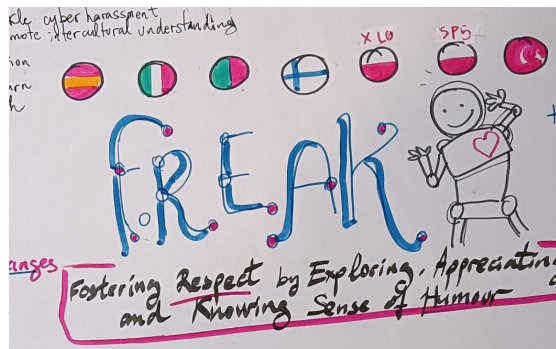 cyber harassment
mote intercultural understanding
ion
arn
XLO SP5
F.REAK
anges
Fostering Respect by Exploring, Appreciatin
and Knowing Sense of Humour